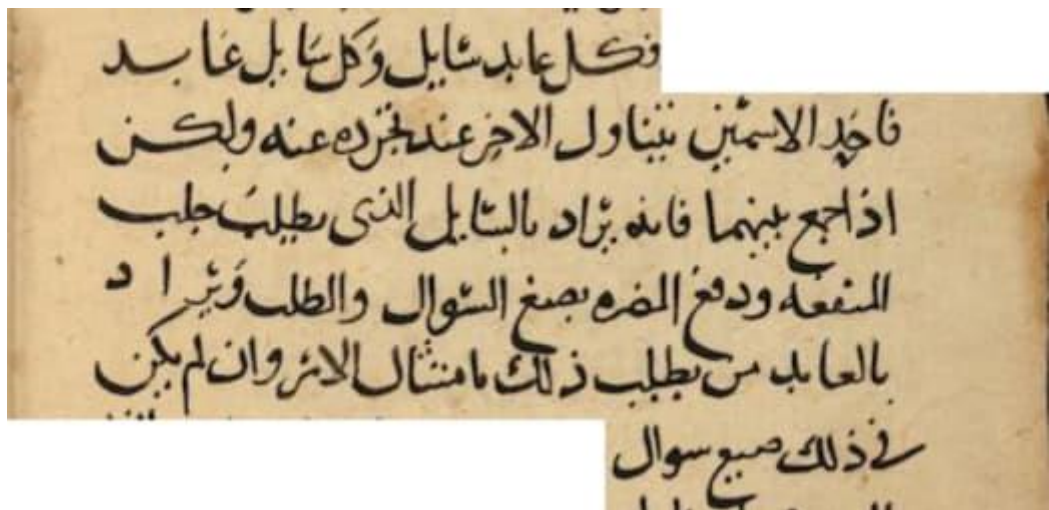 فكل عابد سايل وكل سايل عابد
فاحد الاسمين يتناول الاخر عند تجرده عنه ولكن
اذا جمع بينهما فانه يراد بالسايل الذي يطلب جلب
المنفعه ودفع المضره بصيغ السوال والطلب ويراد
بالعابد من يطلب ذلك بامتثال الامر وان لم يكن
في ذلك صيغ سوال